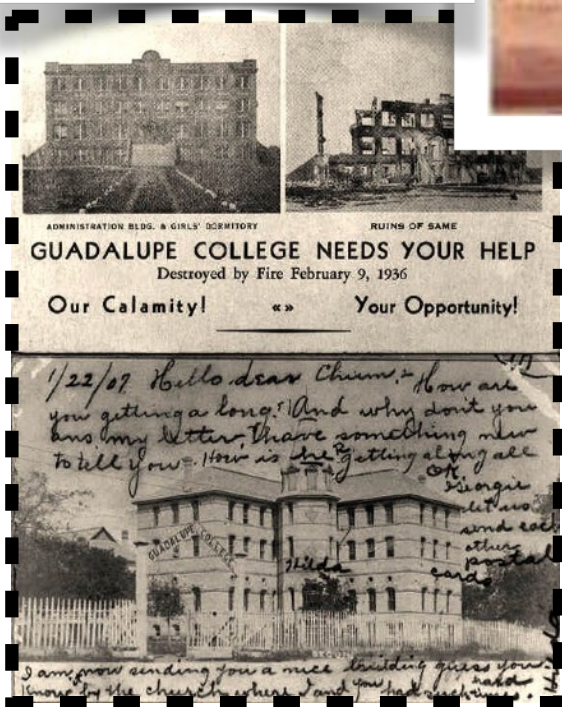 ADMINISTRATION BLDG. & GIRLS' DORMITORY
RUINS OF SAME
GUADALUPE COLLEGE NEEDS YOUR HELP
Destroyed by Fire February 9, 1936
Our Calamity! «» Your Opportunity!
1/22/07 Hello dear Chum,- How are
you getting a long? And why don't you
ans. my letter, I have something new
to tell you. How is he getting along all
OK.
Georgie
let us
send each
other
postal
cards
GUADALUPE COLLEGE
Hilda
I am now sending you a nice building guess you
know by the church where I and you had such